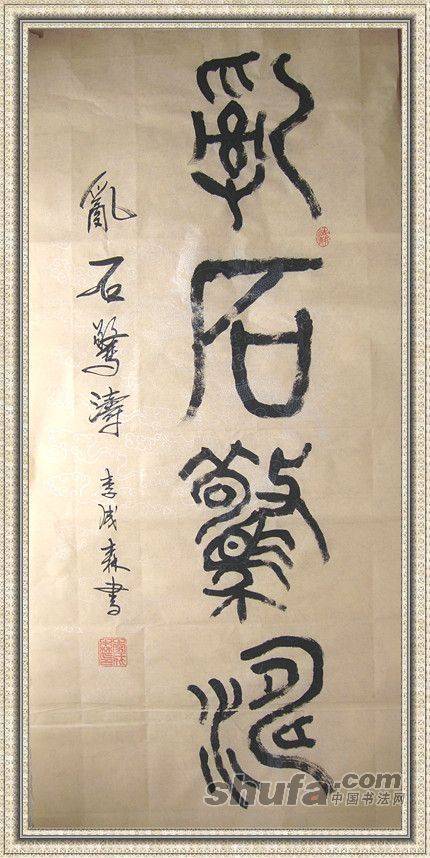 亂石驚濤
亂石驚濤 李成森書
shufa.com
中国书法网